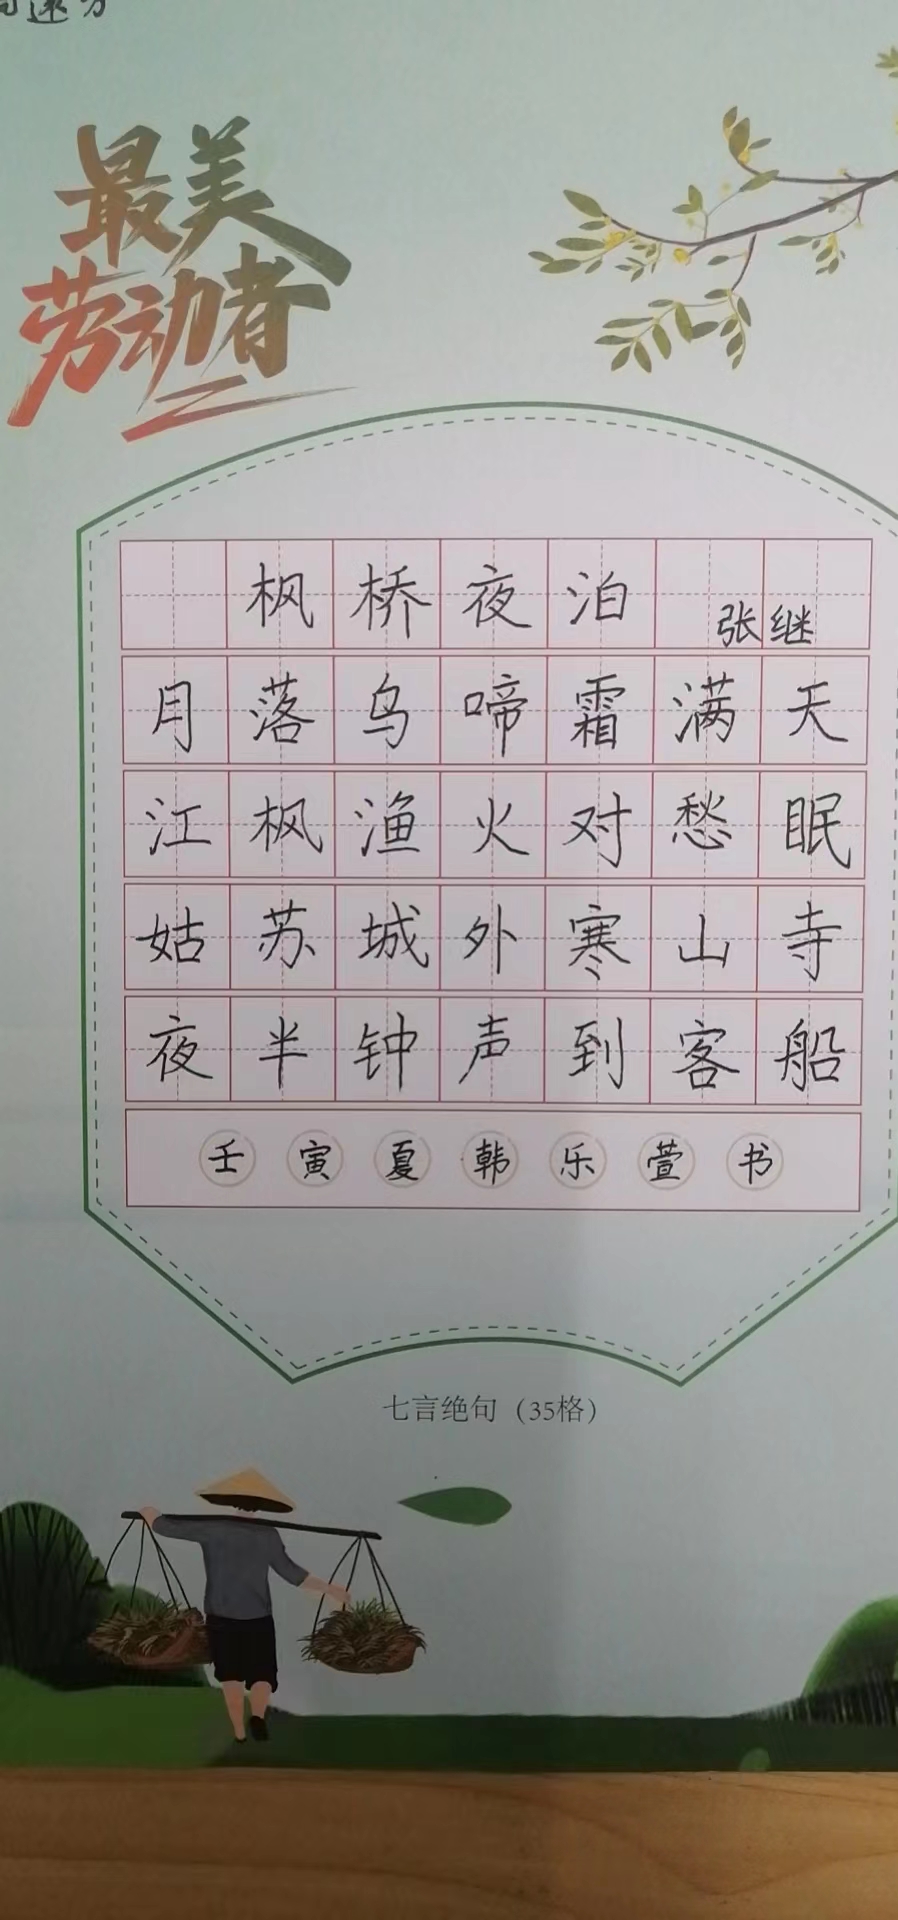 最美
劳动者
枫桥夜泊
张继
月落乌啼霜满天
江枫渔火对愁眠
姑苏城外寒山寺
夜半钟声到客船
壬寅夏韩乐萱书
七言绝句（35格）